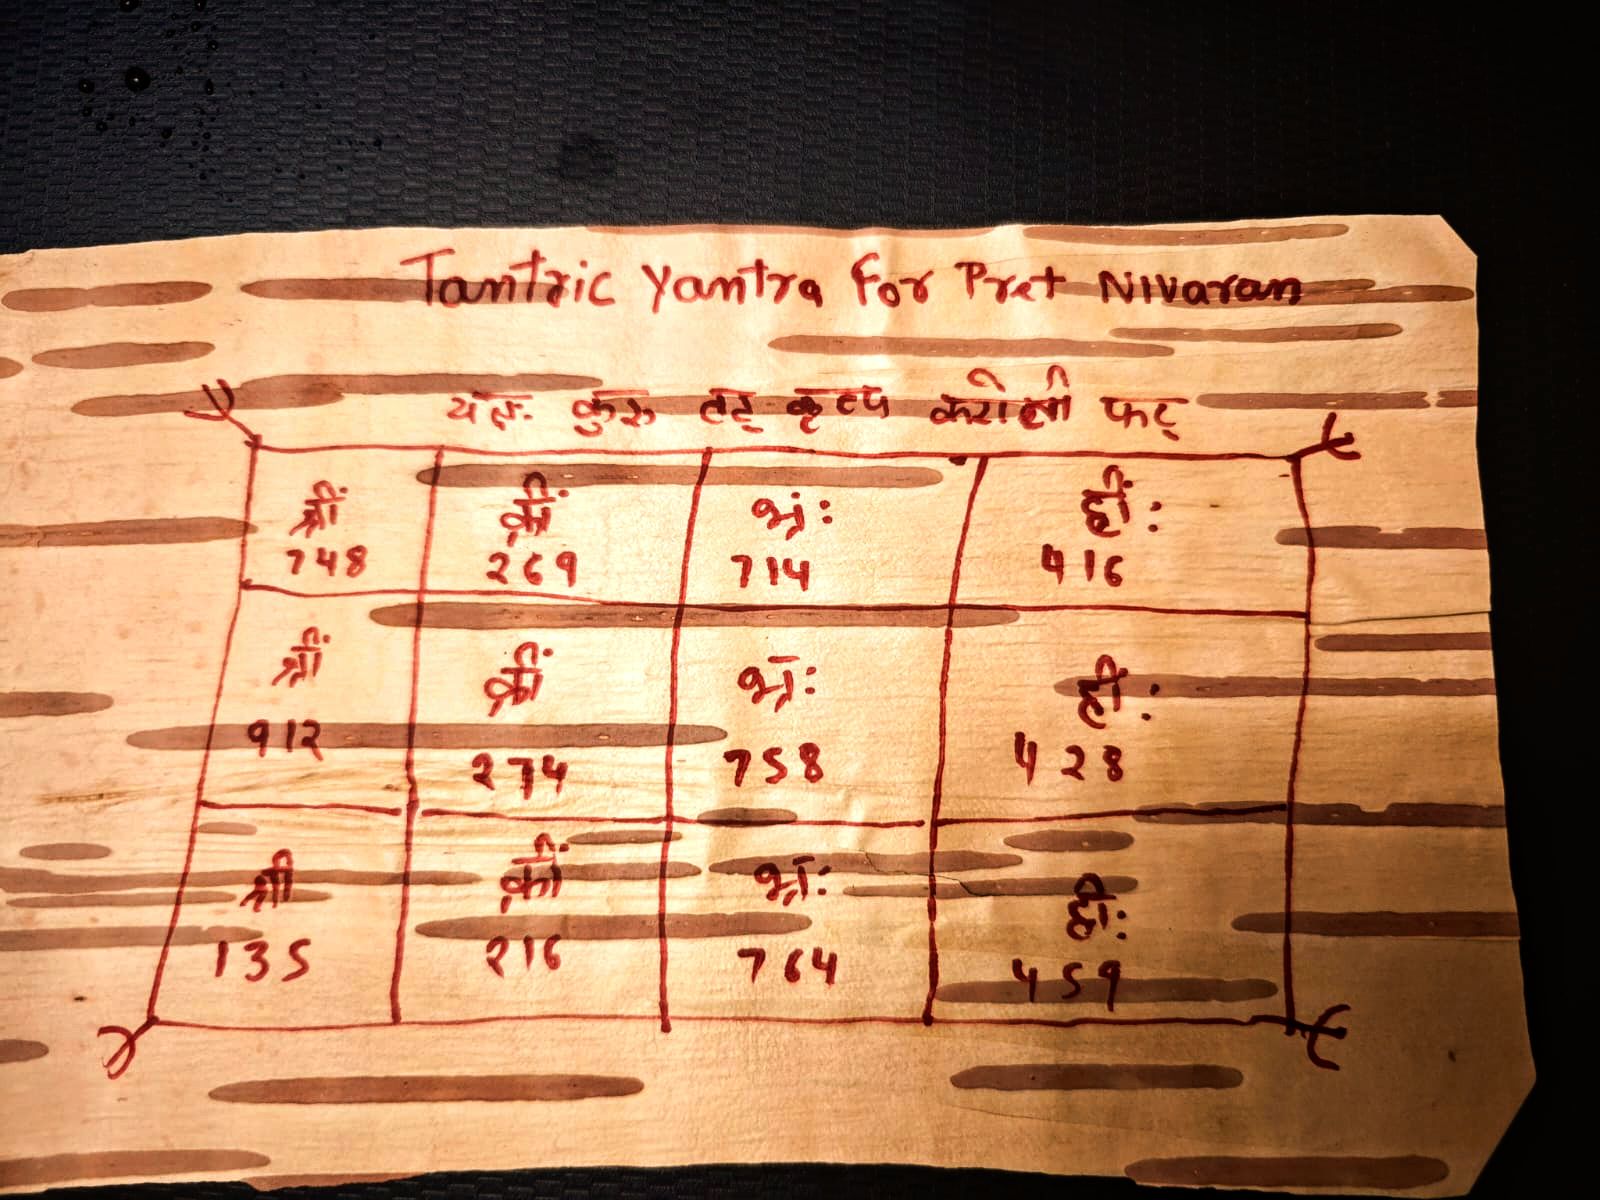 Tantric Yantra For Pret Nivaran
यहः कुरु तद् कृत्य करोसी फट्
श्रीं क्रीं भ्रं: ह्रीं:
748 269 714 416
श्रीं क्रीं भ्रां: ह्रीं:
912 274 758 428
श्रीं क्रीं भ्रां: ह्रीं:
135 216 764 459